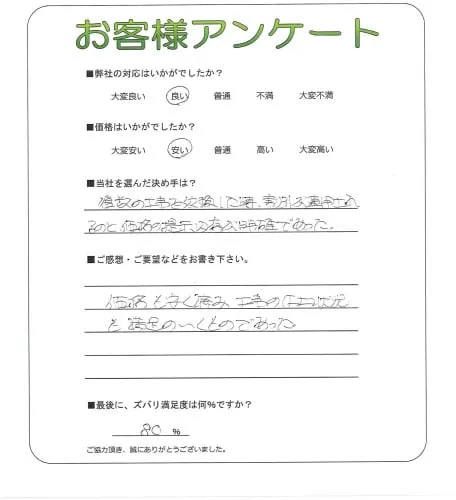 お客様アンケート
■弊社の対応はいかがでしたか?
大変良い 良い 普通 不満 大変不満
■価格はいかがでしたか?
大変安い 安い 普通 高い 大変高い
■当社を選んだ決め手は?
複数の工事を依頼した際、割引が適用され
るのと価格の提示が明確であった。
■ご感想・ご要望などをお書き下さい。
価格も安く済み 工事の仕上状況
も満足のいくものであった
■最後に、ズバリ満足度は何%ですか?
80 %
ご協力頂き、誠にありがとうございました。